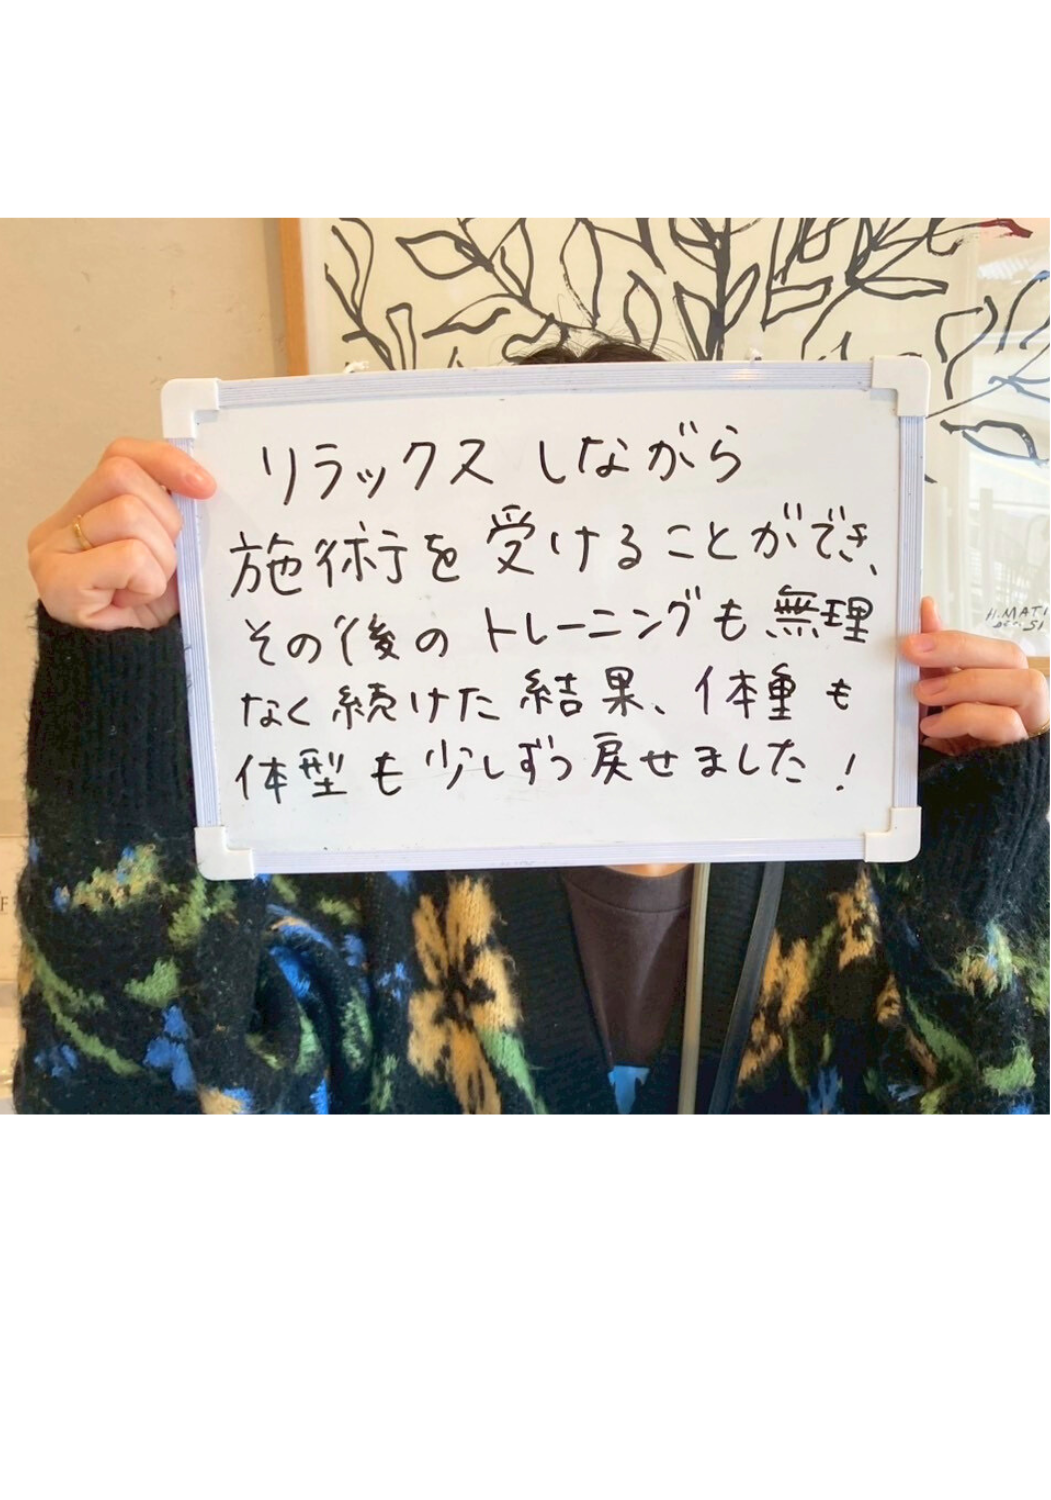 リラックスしながら
施術を受けることができ、
その後のトレーニングも無理
なく続けた結果、体重も
体型も少しずつ戻せました！
H.MATI
F